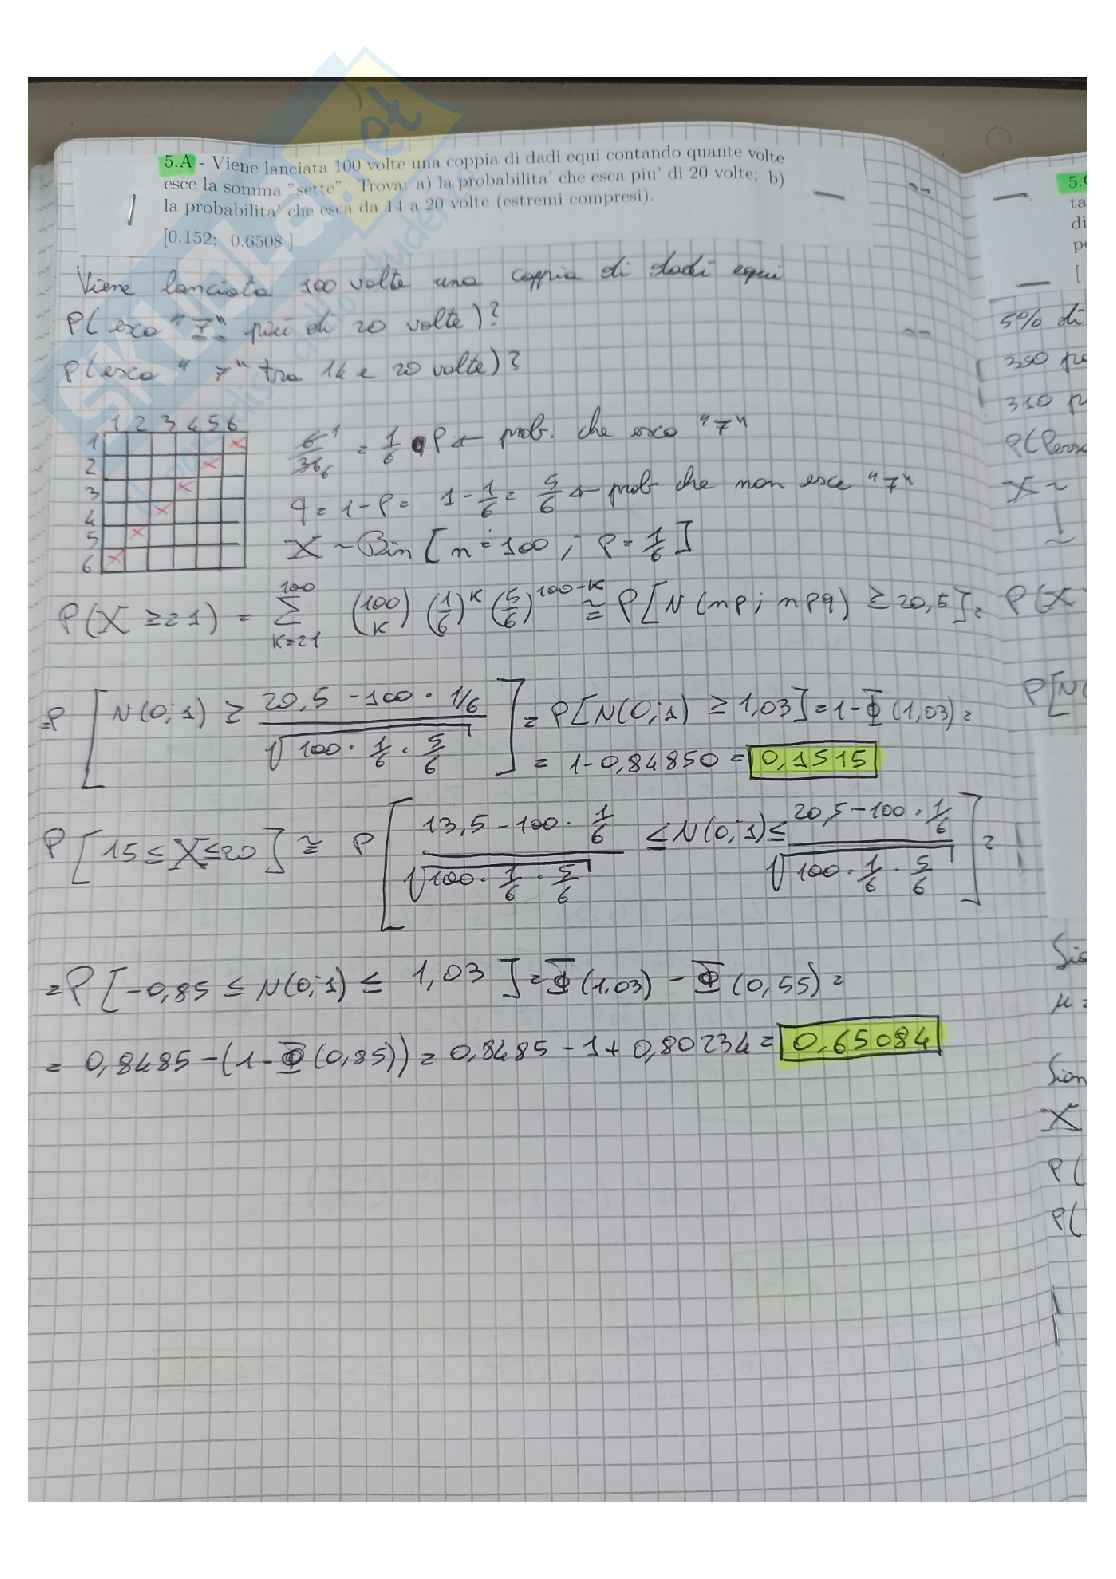 5.A - Viene lanciata 100 volte una coppia di dadi equi contando quante volte
esce la somma "sette". Trova: a) la probabilita' che esca piu' di 20 volte; b)
la probabilita' che esca da 14 a 20 volte (estremi compresi).
[0.152; 0.6508 ]
Viene lanciata 100 volte una coppia di dadi equi
P( esca "7" più di 20 volte)?
P(esca "7" tra 14 e 20 volte)?
1 2 3 4 5 6
1
2
3
4
5
6
6/36 = 1/6 P ← prob. che esca "7"
q = 1-P = 1-1/6 = 5/6 ← prob che non esce "7"
X ~ Bin [n=100; P=1/6]
P(X ≥ 21) = Σ k=21 100 (100 k) (1/6)^k (5/6)^100-k ≅ P[N(np; npq) ≥ 20,5] =
=P [N(0;1) ≥ (20,5-100·1/6)/√(100·1/6·5/6)] = P[N(0;1) ≥ 1,03] = 1-Φ(1,03) =
= 1-0,84850 = 0,1515
P[15≤X≤20] ≅ P[(13,5-100·1/6)/√(100·1/6·5/6) ≤ N(0;1) ≤ (20,5-100·1/6)/√(100·1/6·5/6)] =
=P[-0,85 ≤ N(0;1) ≤ 1,03] = Φ(1,03) - Φ(0,55) =
= 0,8485-(1-Φ(0,85)) = 0,8485-1+0,80234 = 0,65084
5%  di
350
310
X ~
P(X
P[N(
μ =
X
P(
P(
SKUOLA.net